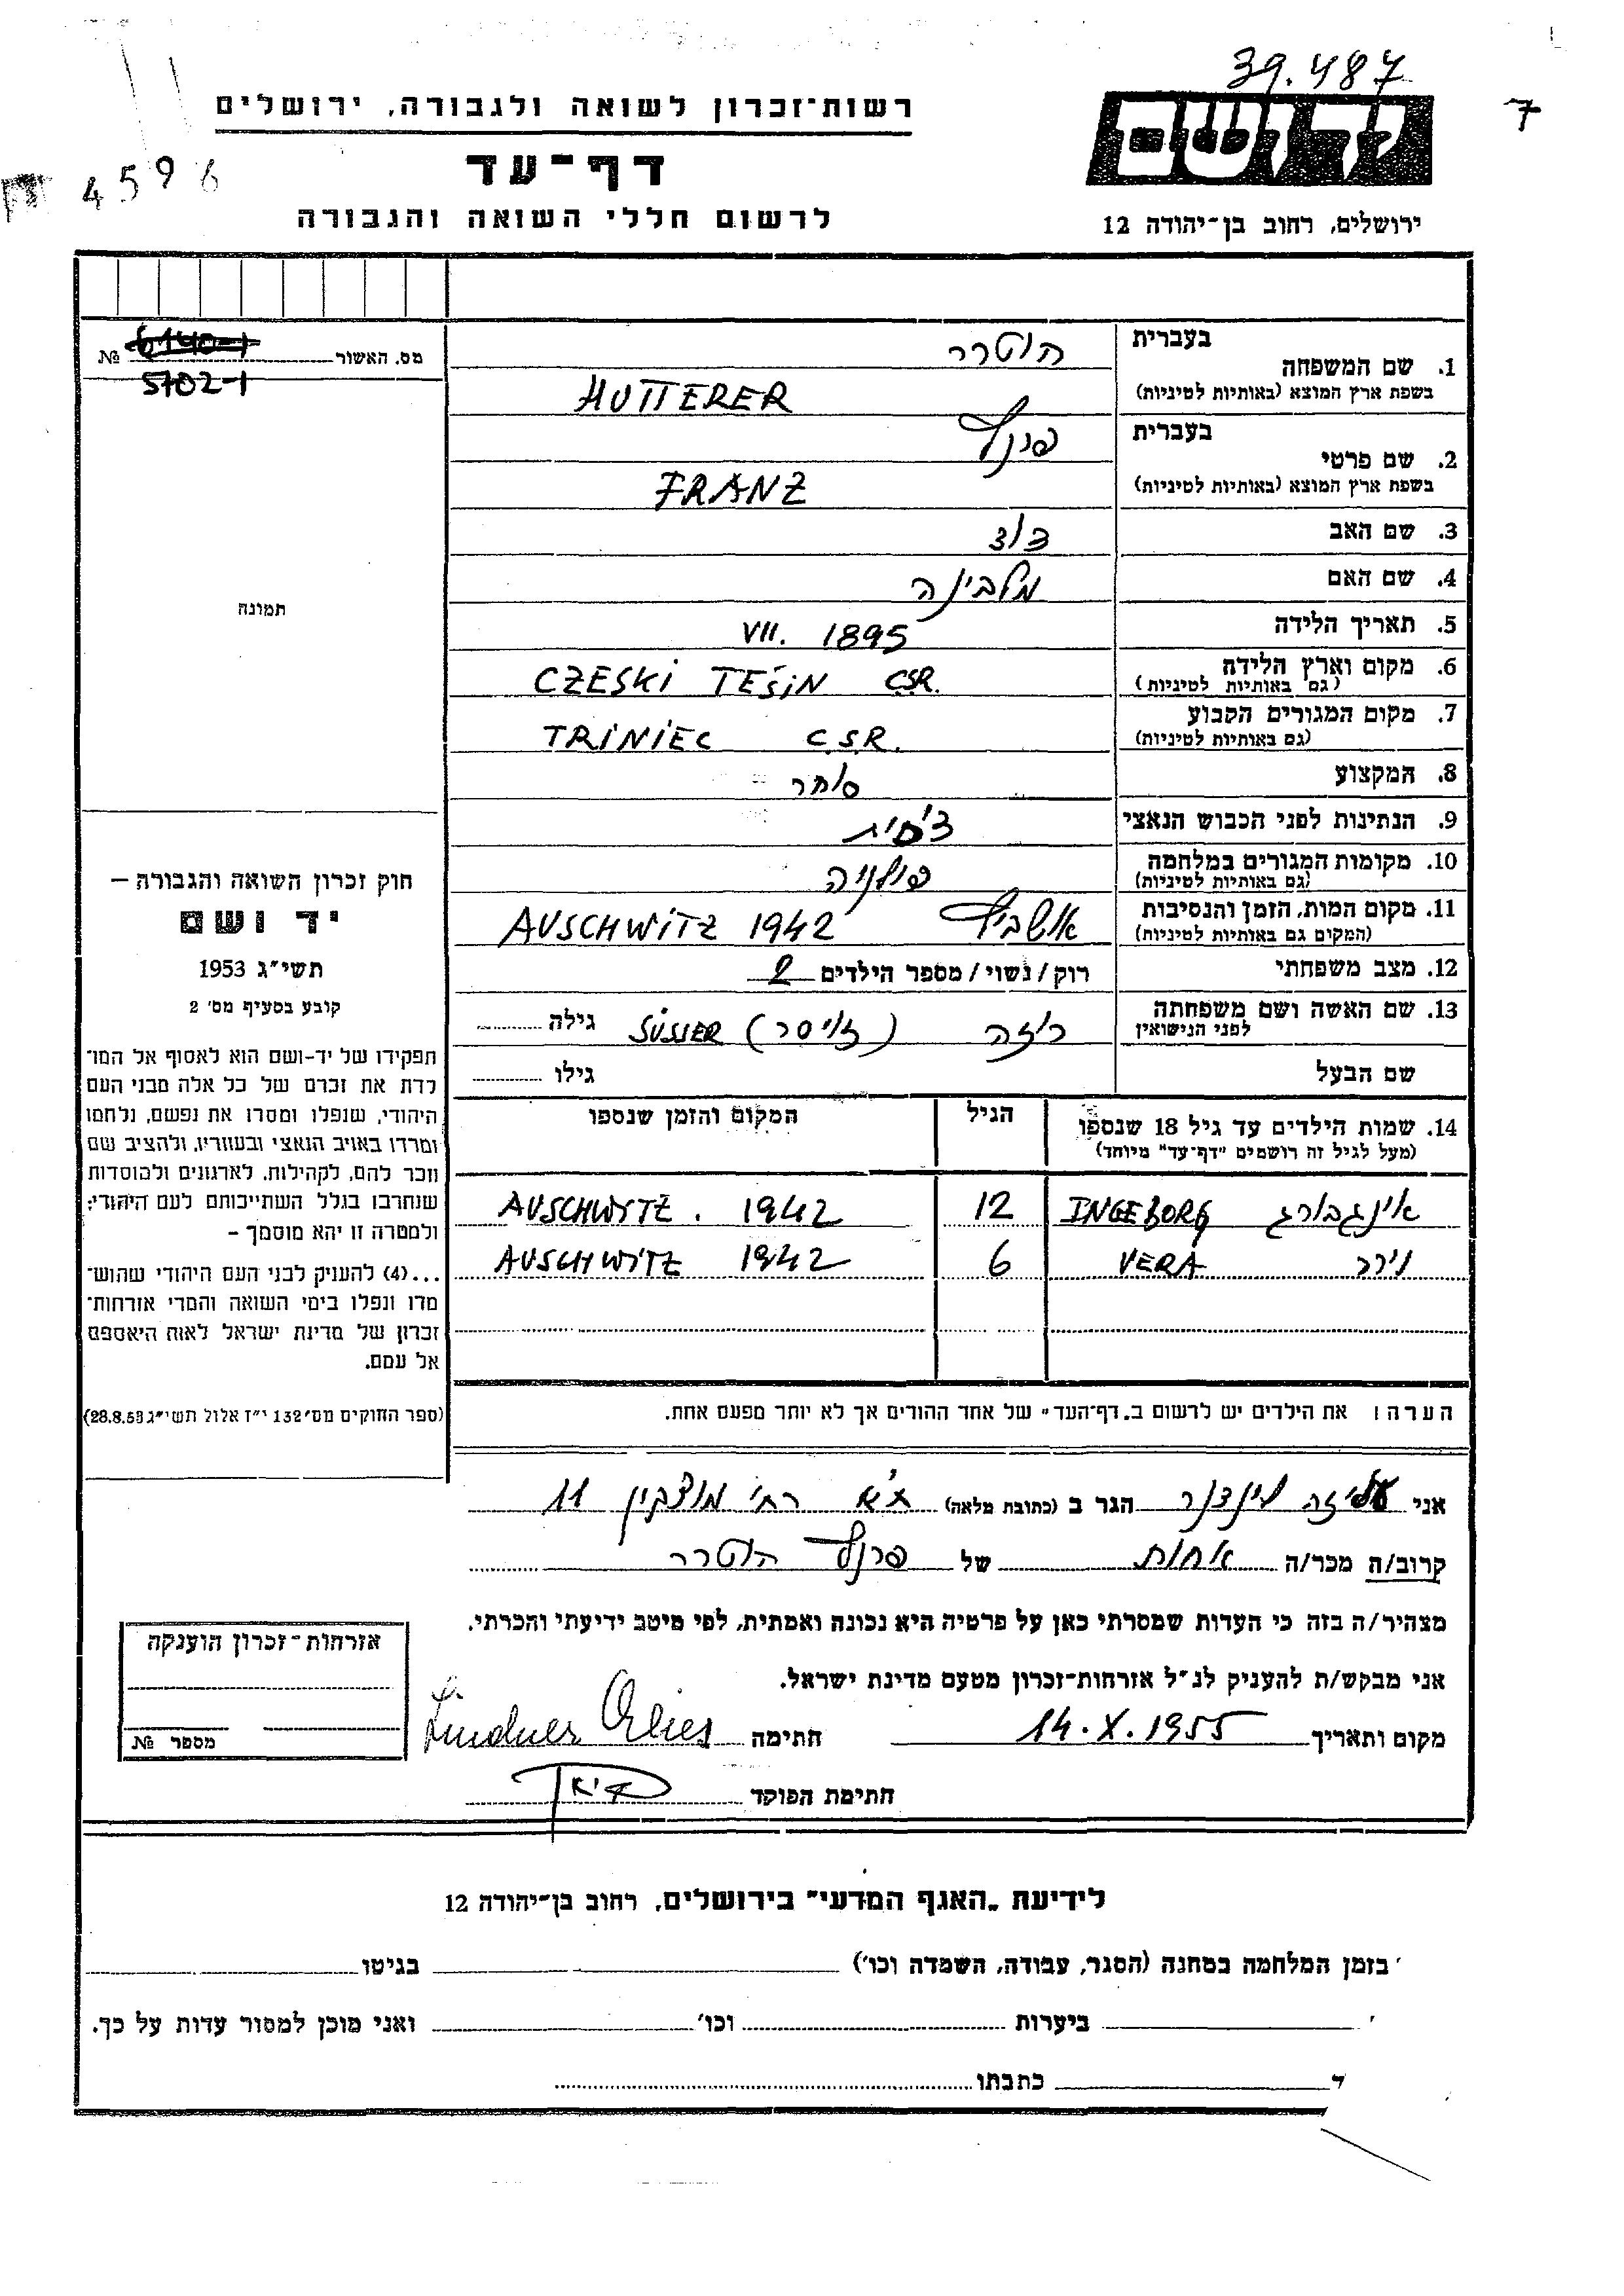 39.487
7
ידושם
ירושלים, רחוב בן־יהודה 12
רשות־זכרון לשואה ולגבורה, ירושלים
דף־עד
לרשום חללי השואה והגבורה
4596
מס. האשור № 6140-1
5702-1
תמונה
בעברית הוטרר
1. שם המשפחה
בשפת ארץ המוצא (באותיות לטיניות) HUTTERER
בעברית פרנץ
2. שם פרטי
בשפת ארץ המוצא (באותיות לטיניות) FRANZ
3. שם האב
4. שם האם מלבינה
5. תאריך הלידה VII. 1895
6. מקום וארץ הלידה CZESKI TEŠIN CSR.
(גם באותיות לטיניות)
7. מקום המגורים הקבוע TRINIEC C.S.R.
(גם באותיות לטיניות)
8. המקצוע סוחר
9. הנתינות לפני הכבוש הנאצי צ'כית
10. מקומות המגורים במלחמה פולניה
(גם באותיות לטיניות)
11. מקום המות, הזמן והנסיבות אושביץ AUSCHWITZ 1942
(המקום גם באותיות לטיניות)
12. מצב משפחתי רוק/נשוי/מספר הילדים 2
13. שם האשה ושם משפחתה רוזה (זיסר) SÜSSER גילה
לפני הנישואין
שם הבעל גילו
14. שמות הילדים עד גיל 18 שנספו הגיל המקום והזמן שנספו
(מעל לגיל זה רושמים "דף־עד" מיוחד)
אינגבורג INGEBORG 12 AUSCHWYTZ. 1942
וירר VERA 6 AUSCHWITZ 1942
הערה: את הילדים יש לרשום ב„דף־העד" של אחד ההורים אך לא יותר מפעם אחת.
חוק זכרון השואה והגבורה –
יד ושם
תשי"ג 1953
קובע בסעיף מס' 2
תפקידו של יד-ושם הוא לאסוף אל המו־
לדת את זכרם של כל אלה מבני העם
היהודי, שנפלו ומסרו את נפשם, נלחמו
ומרדו באויב הנאצי ובעוזריו, ולהציב שם
וזכר להם, לקהילות, לארגונים ולמוסדות
שנחרבו בגלל השתייכותם לעם היהודי;
ולמטרה זו יהא מוסמך –
...(4) להעניק לבני העם היהודי שהוש־
מדו ונפלו בימי השואה והמרי אזרחות־
זכרון של מדינת ישראל לאות היאספם
אל עמם.
(ספר החוקים מס' 132 י"ז אלול תשי"ג 28.8.53)
אני עליזה לינדנר הגר ב (כתובת מלאה) ת"א רח' מוצקין 11
קרוב/ה מכר/ה אחות של פרנץ הוטרר
מצהיר/ה בזה כי העדות שמסרתי כאן על פרטיה היא נכונה ואמתית, לפי מיטב ידיעתי והכרתי.
אני מבקש/ת להעניק לנ"ל אזרחות-זכרון מטעם מדינת ישראל.
מקום ותאריך 14.X.1955 חתימה Lindner
חתימת הפוקד
אזרחות־זכרון הוענקה
מספר №
לידיעת „האגף המדעי" בירושלים, רחוב בן־יהודה 12
בזמן המלחמה במחנה (הסגר, עבודה, השמדה וכו') בגיטו
ביערות וכו' ואני מוכן למסור עדות על כך.
כתבתו